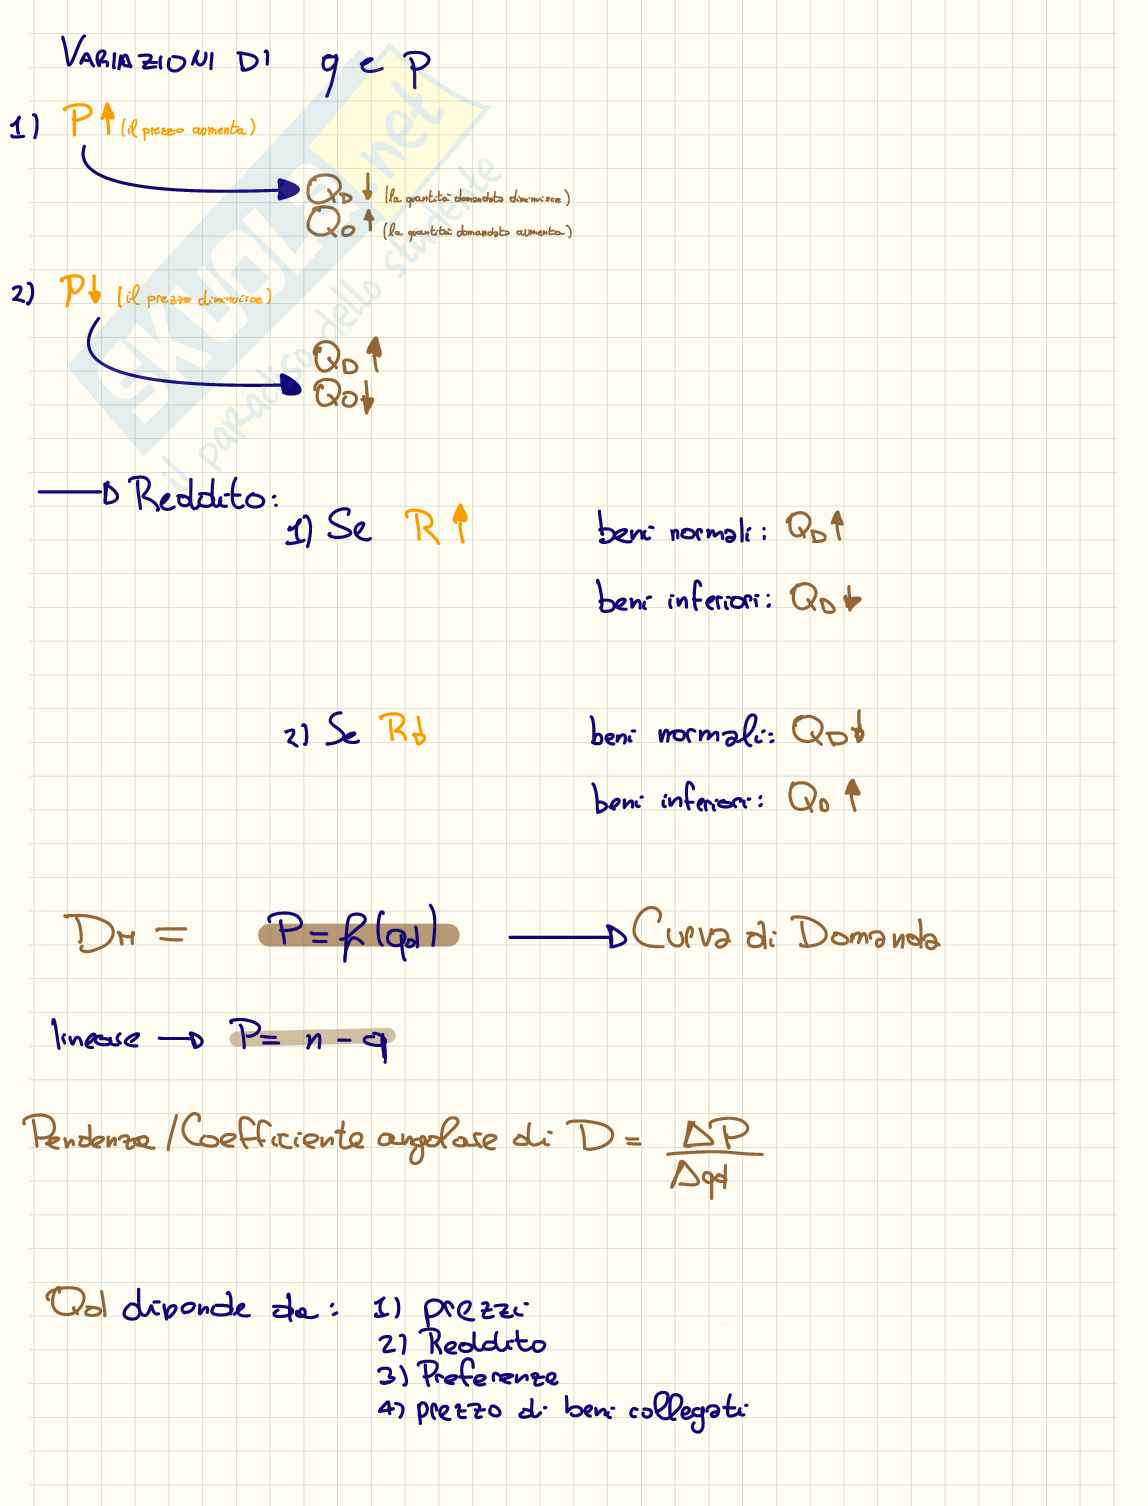 VARIAZIONI DI q e P
1) P ↑ (il prezzo aumenta)
QD ↓ (la quantità domandata diminuisce)
QO ↑ (la quantità domandata aumenta)
2) P ↓ (il prezzo diminuisce)
QD ↑
QO ↓
→ Reddito:
1) Se R ↑ beni normali: QD ↑
beni inferiori: QD ↓
2) Se R ↓ beni normali: QD ↓
beni inferiori: QD ↑
DM = P = f(qd) → Curva di Domanda
lineare → P = n - q
Pendenza / Coefficiente angolare di D = ΔP / Δqd
Qd diponde da: 1) prezzi
2) Reddito
3) Preferenze
4) prezzo di beni collegati
SKUOLA.net
il paradiso dello studente